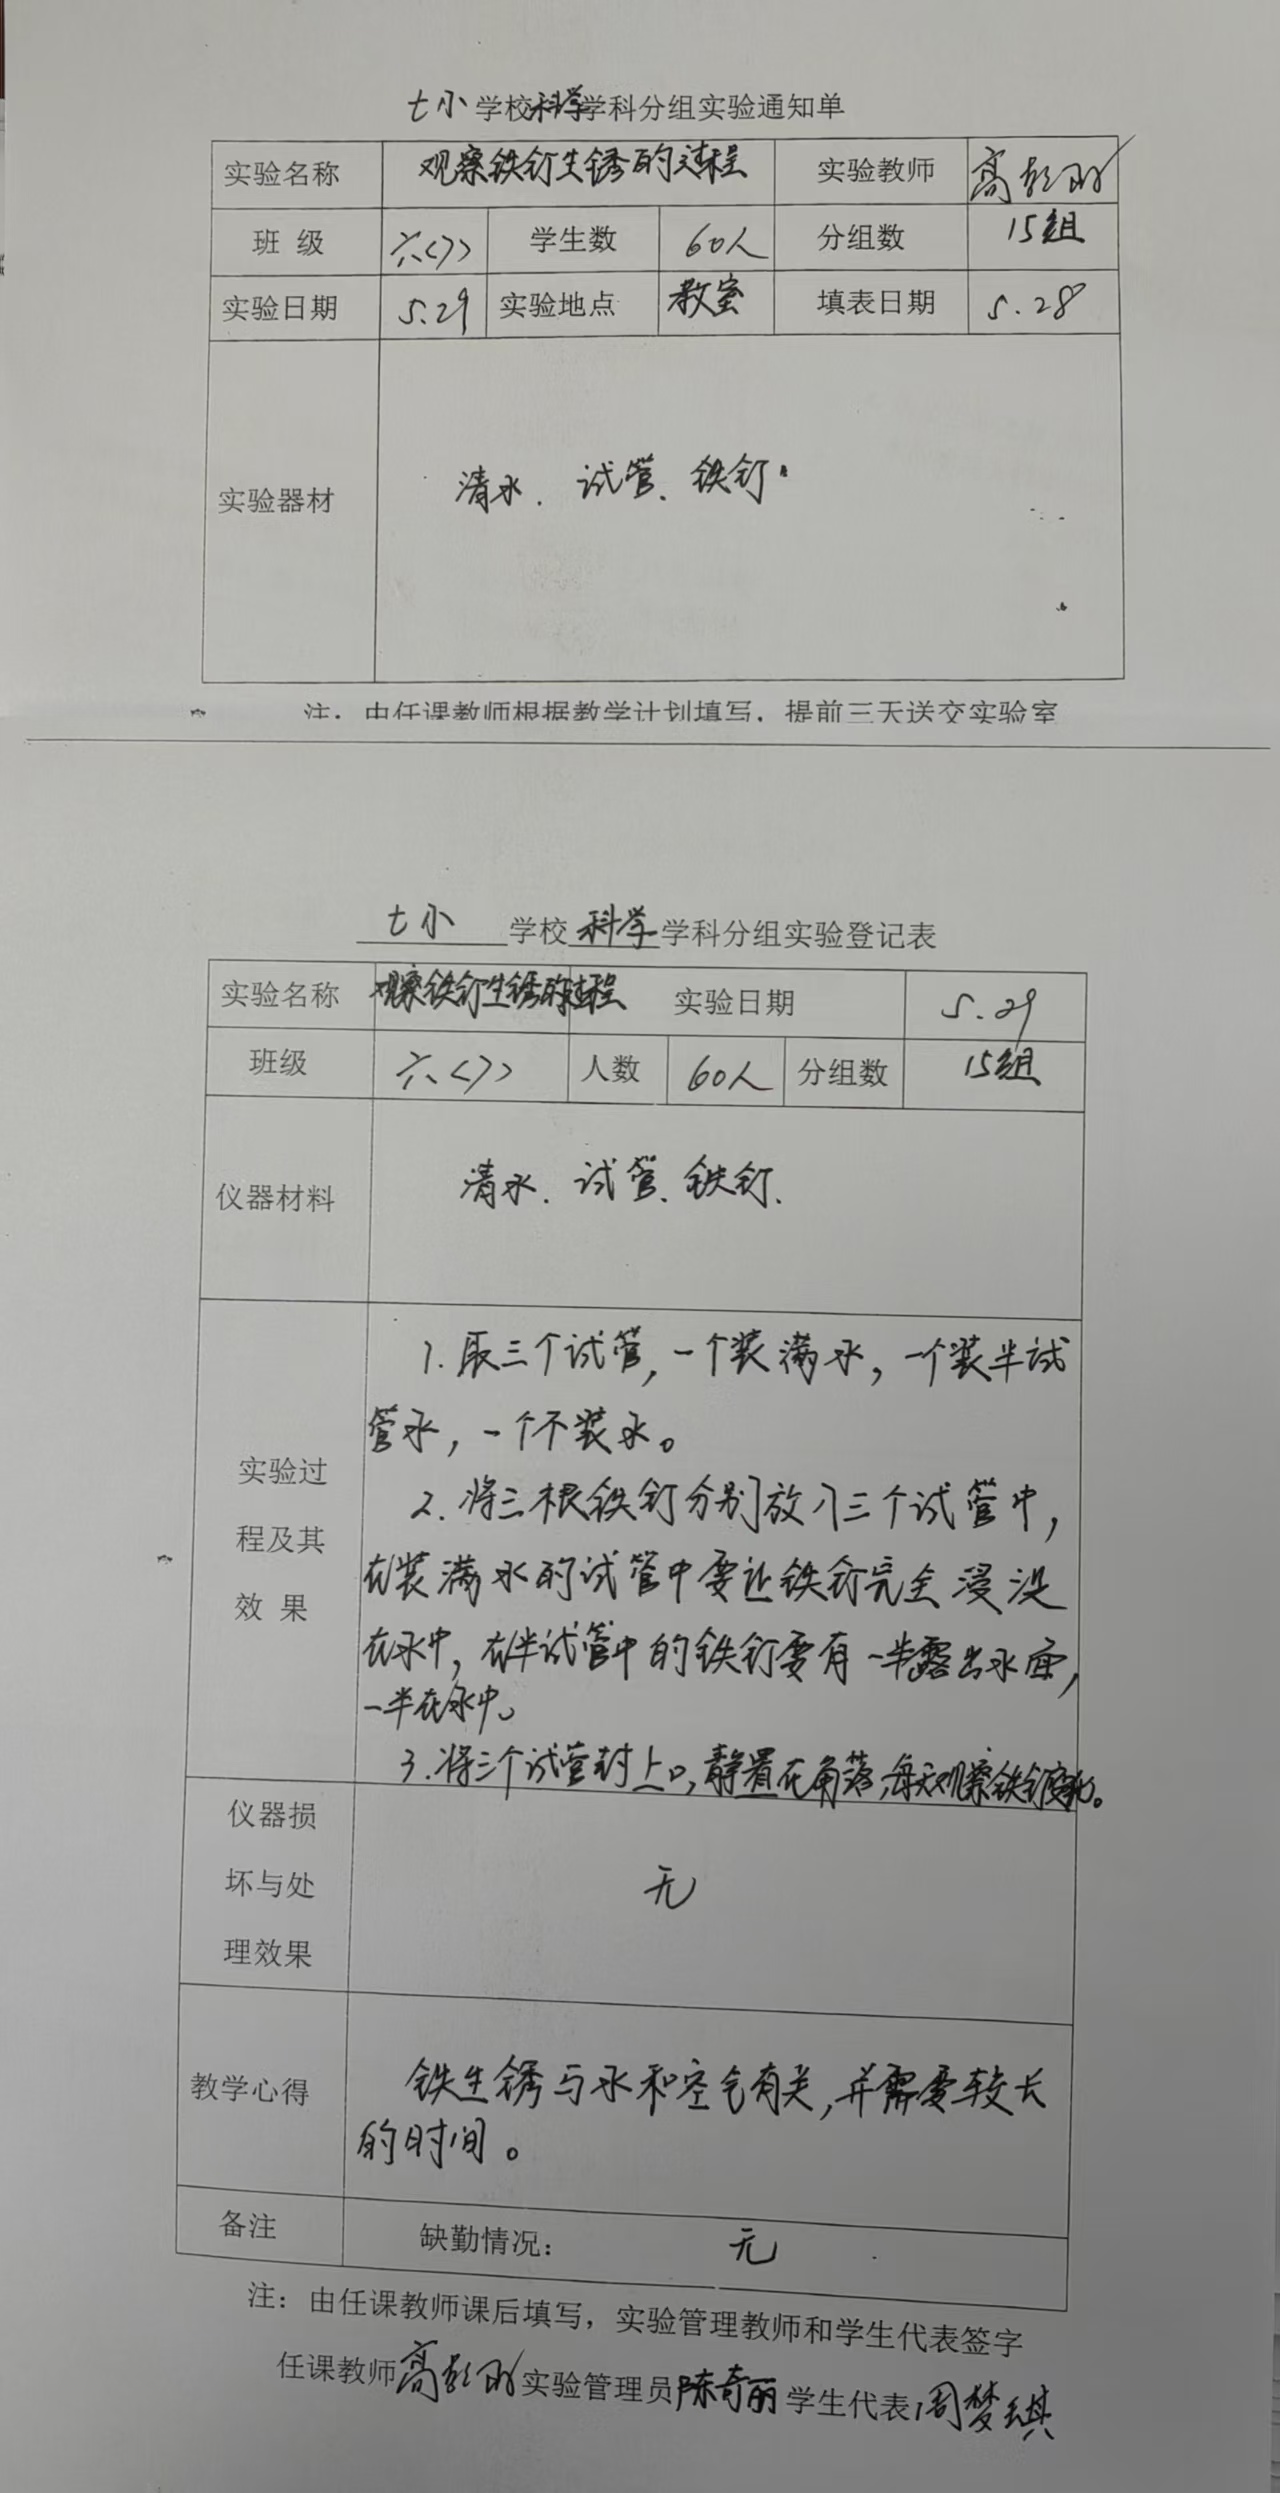 七小 学校科学学科分组实验通知单
实验名称 观察铁钉生锈的过程 实验教师 高
班 级 六<7> 学生数 60人 分组数 15组
实验日期 5.29 实验地点 教室 填表日期 5.28
实验器材 清水.试管、铁钉.
注:由任课教师根据教学计划填写,提前三天送交实验室
七小 学校 科学 学科分组实验登记表
实验名称 观察铁钉生锈的过程 实验日期 5.29
班级 六<7> 人数 60人 分组数 15组
仪器材料 清水.试管、铁钉、
1.取三个试管,一个装满水,一个装半试
管水,一个不装水。
实验过
2.将三根铁钉分别放入三个试管中,
程及其
在装满水的试管中要让铁钉完全浸没
效 果
在水中,在半试管中的铁钉要有一半露出水面,
一半在水中。
3.将三个试管封上口,静置在角落,每天观察铁钉变化。
仪器损
坏与处 无
理效果
教学心得 铁生锈与水和空气有关,并需要较长
的时间。
备注 缺勤情况: 无
注:由任课教师课后填写,实验管理教师和学生代表签字
任课教师高 实验管理员陈奇丽 学生代表周梦琪